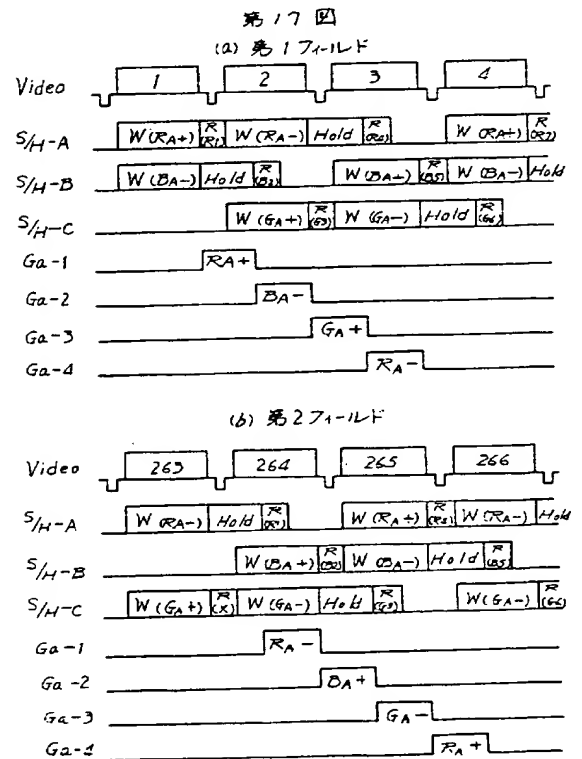 第17図
(a) 第1フィールド
Video 1 2 3 4
S/H-A W(RA+) R(R1) W(RA-) Hold R(R4) W(RA+) R(R7)
S/H-B W(BA-) Hold R(B2) W(BA+) R(B5) W(BA-) Hold
S/H-C W(GA+) R(G3) W(GA-) Hold R(G6)
Ga-1 RA+
Ga-2 BA-
Ga-3 GA+
Ga-4 RA-
(b) 第2フィールド
Video 263 264 265 266
S/H-A W(RA-) Hold R(R1) W(RA+) R(R4) W(RA-) Hold
S/H-B W(BA+) R(B2) W(BA-) Hold R(B5)
S/H-C W(GA+) R(X) W(GA-) Hold R(G3) W(GA-) R(G6)
Ga-1 RA-
Ga-2 BA+
Ga-3 GA-
Ga-4 RA+